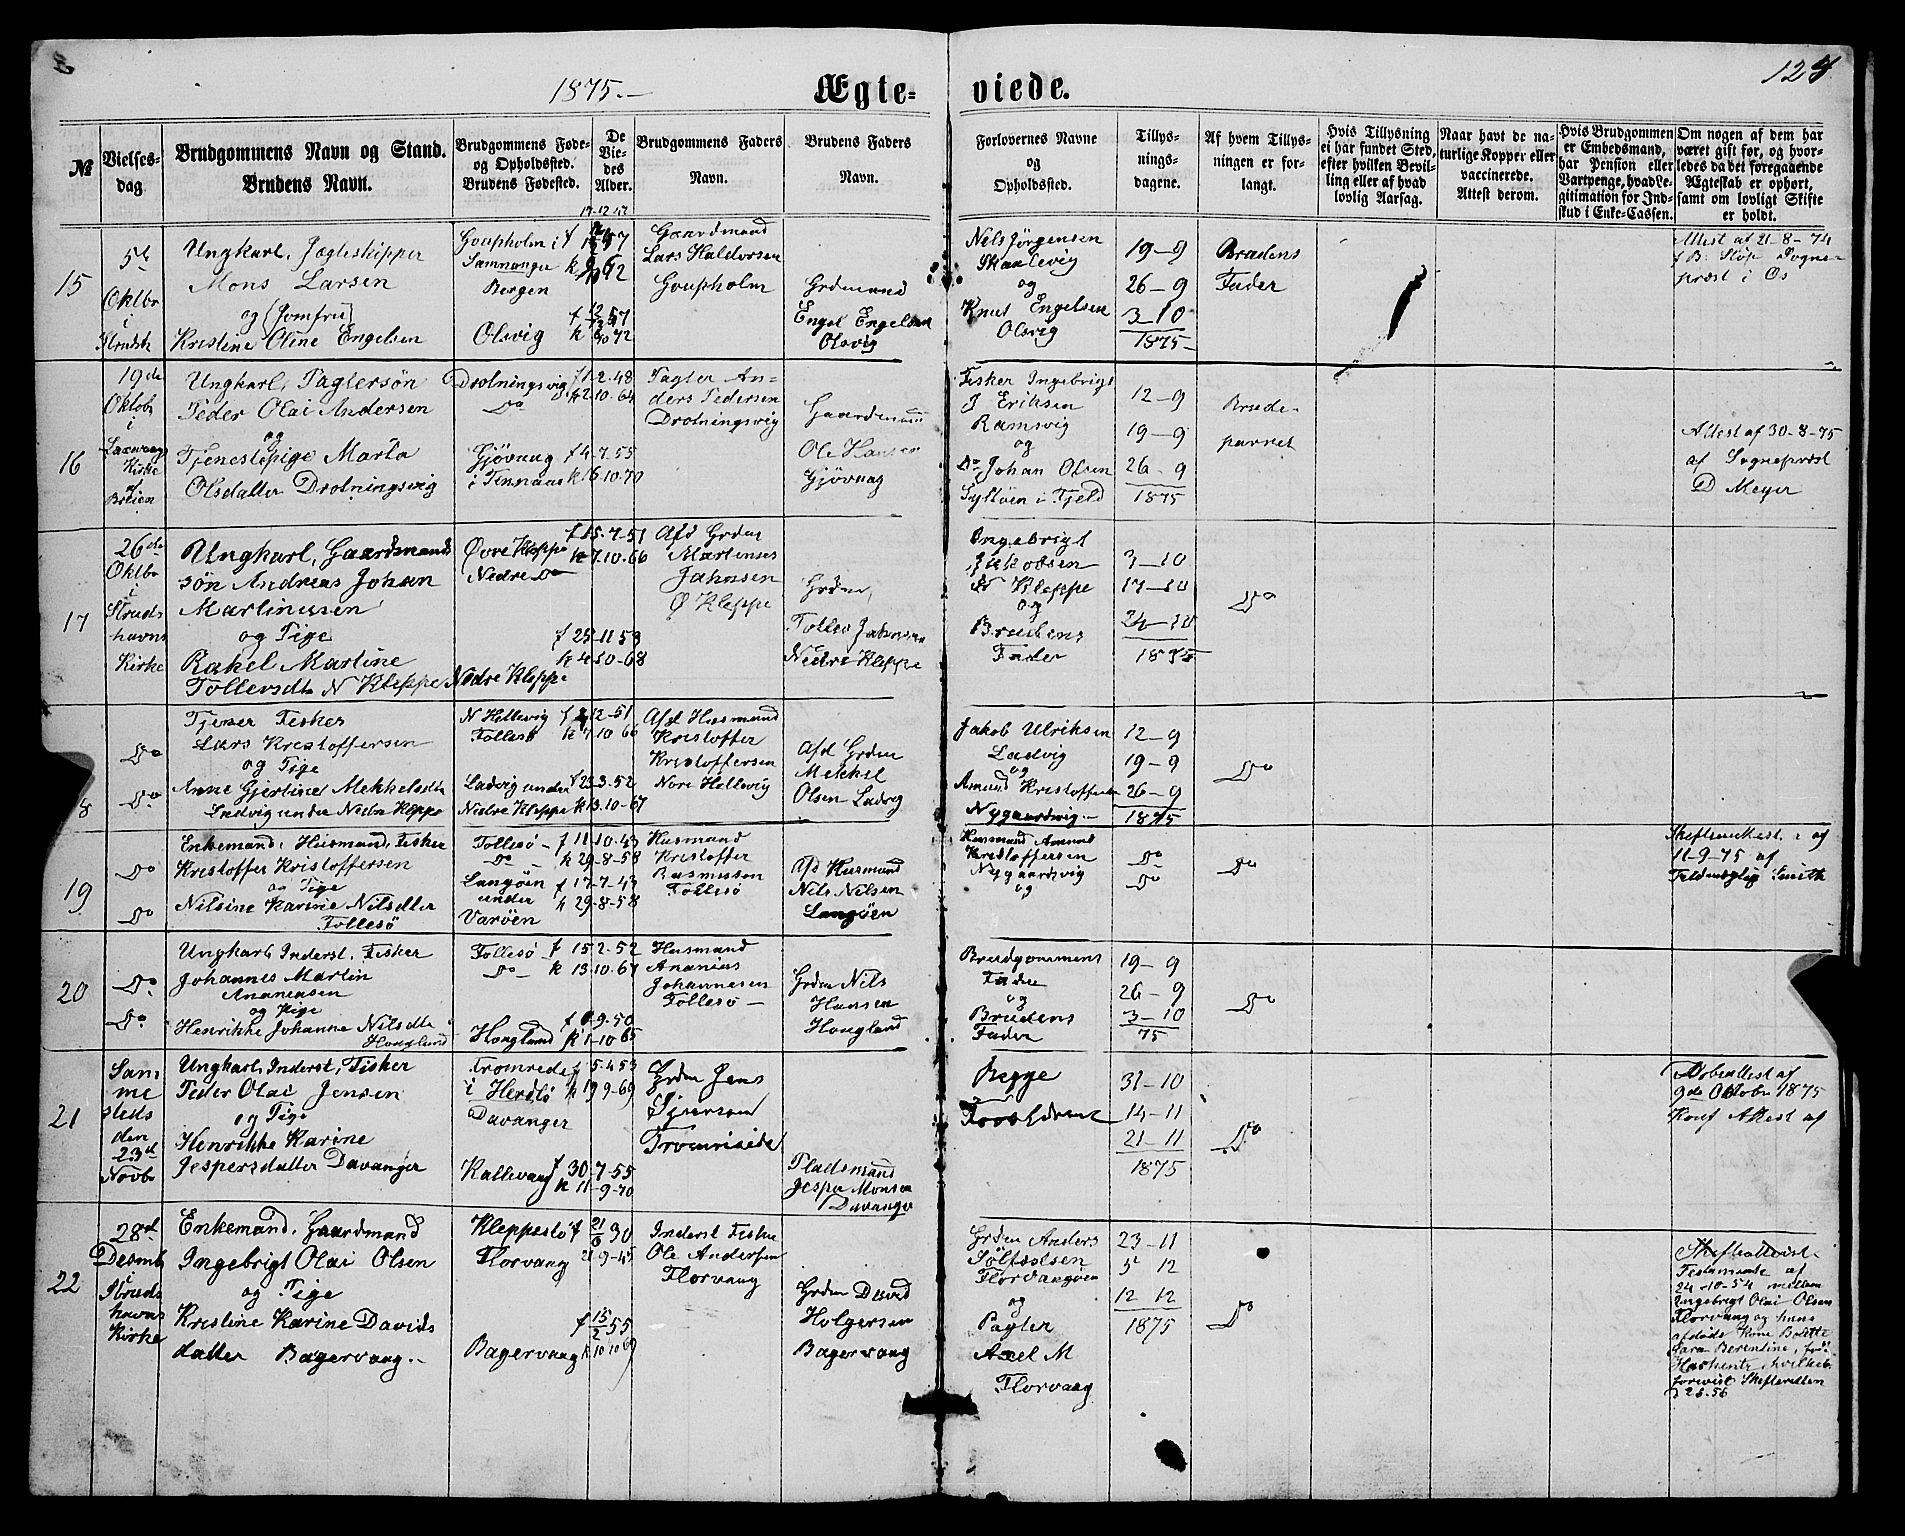 1875.
Ægteviede.
124
№
Vielsesdag.
Brudgommens Navn og Stand.
Brudens Navn.
Brudgommens Føde- og Opholdssted.
Brudens Fødested.
De Viedes Alder.
Brudgommens Faders Navn.
Brudens Faders Navn.
Forlovernes Navne
og
Opholdssted.
Tillysningsdagene.
Af hvem Tillysningen er forlangt.
Hvis Tillysning
ei har fundet Sted,
efter hvilken Bevilling eller af hvad
lovlig Aarsag.
Naar havt de naturlige Kopper eller
vaccinerede.
Attest derom.
Hvis Brudgommen
er Embedsmand,
har Pension eller
Vartpenge, hvad Legitimation for Indskud i Enke-Cassen.
Om nogen af dem har
været gift før, og hvorledes da det foregaaende
Ægteskab er ophørt,
samt om lovligt Skifte
er holdt.
15
5te
Oktbr
i
Ungkarl, Jagteskipper
Mons Larsen
og (Jomfru)
Kristine Oline Engelsen
Samnanger
Bergen
Olsvig
Gaardmand
Lars Haldorsen
Grdmand
Engel Engelsen
Olsvig
Nels Jörgensen
og
Knut Engelsen
Olsvig
19-9
26-9
3-10
1875
Brudens
Fader
Attest af 21-8-74
f B. Sogneprest i Os
16
19de
Oktobr
i
Laxevaag
Kirke
af
Ungkarl, Pagtersön
Peder Olai Andersen
og
Tjenestepige Marta
Olsdatter Drotningsvig
Drotningsvig f 1-2-48
Do k 2-10-64
Gjövaag f 4-7-55
k 16-10-70
Pagter Anders Pedersen
Drotningsvig
Gaardmand
Ole Hansen
Gjövaag
Fisker Ingebrigt
J Eriksen
Ramsvig
og
Do Johan Olsen
Syltöen i Fjeld
12-9
19-9
26-9
1875
Brudeparret
Attest af 30-8-75
af Sogneprest
D Meyer
17
26de
Oktbr
i
Strudshavns
Kirke
Ungkarl, Gaardmandssön Andreas Johan
Martinusen
og Pige
Rakel Martine
Tollevsdtr N Kleppe
Övre Kleppe f 15-7-51
Nedre Do k 7-10-66
f 25-11-53
k 4-10-68
Nedre Kleppe
Afd Grdm
Martinus
Jahnsen
Ö Kleppe
Grdm
Tollev Jahnsen
Nedre Kleppe
Ingebrigt
Jakobsen
N Kleppe
og
Brudens
Fader
3-10
17-10
24-10
1875
Do
Do
Do
Tjener Fisker
Lars Kristoffersen
og Pige
Anne Gjertine Mekkelsdtr
Ladvig under Nedre Kleppe
N Hellevig
Follesö
Ladvig under f 23-3-52
Nedre Kleppe k 13-10-67
Afd Husmand
Kristoffer
Kristoffersen
Nore Hellevig
Afd Grdm
Mekkel
Olsen Ladvig
Jakob Ulriksen
Ladvig
og
Amund Kristoffersen
Nygaardsvig
12-9
19-9
26-9
1875
Do
19
Do
Do
Enkemand, Husmand, Fisker
Kristoffer Kristoffersen
og Pige
Nilsine Karine Nilsdtter
Follesö
Follesö f 11-10-43
Do k 29-8-58
Langöen f 17-7-43
under k 29-8-58
Varöen
Husmand
Kristoffer
Rasmussen
Follesö
Afd Husmand
Nils Nilsen
Langöen
Husmand Amund
Kristoffersen
Nygaardsvig
og
Do
Do
Do
11-9-75 af
Smith
20
Do
Do
Ungkarl, Inderst, Fisker
Johannes Martin
Ananiasen
og Pige
Henrikke Johanne Nilsdtr
Hougland
Follesö f 15-2-52
Do k 13-10-67
Hougland k 1-10-65
Husmand
Ananias
Johannesen
Follesö
Grdm Nils
Hansen
Hougland
Brudgommens
Fader
og
Brudens
Fader
19-9
26-9
3-10
75
Do
21
Sammesteds
den
23de
Novbr
Ungkarl, Inderst, Fisker
Peder Olai Jensen
og Pige
Henrikke Karine
Jespersdatter Davanger
i Herdlö
Davanger
f 30-7-55
k 11-9-70
Grdm Jens
Pladsmand
Jesper Monsen
Davanger
Begge
Forældrene
31-10
14-11
21-11
1875
Do
9de Oktobr 1875
Konf Attest af
22
28de
Desmb
i
Strudshavns
Kirke
Enkemand, Gaardmand
Ingebrigt Olai Olsen
og Pige
Kristine Karine Davidsdatter Bagervaag.
Kleppestö
Florvaag
f 15/2 55
Bagervaag k 10-10-69
Inderst Fisker
Ole Andersen
Florvaag
Grdm David
Holgersen
Bagervaag
Grdm Anders
Florvaagöen
og
Pagter
Axel M
Florvaag
23-11
5-12
12-12
1875
Do
af
24-10-54 mellem
Ingebrigt Olai Olsen
Florvaag og hans
afdöde Kone
Sara Berentine, föd